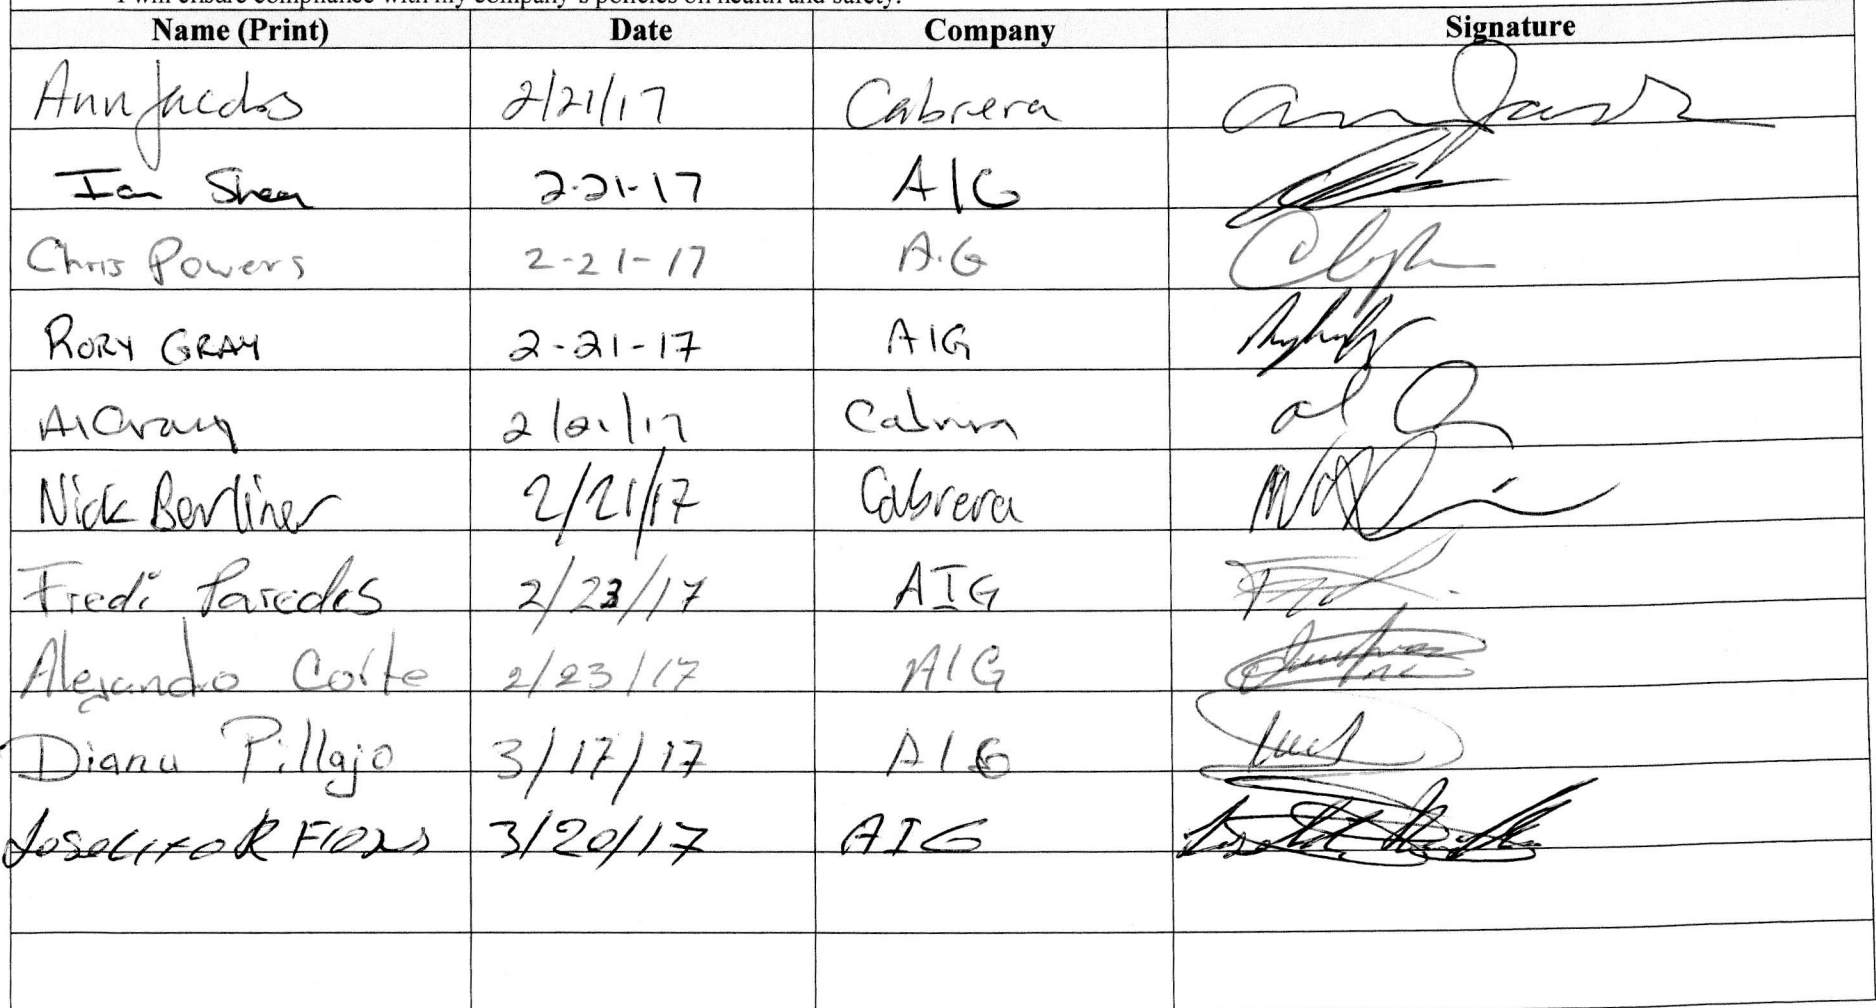 I will ensure compliance with my company's policies on health and safety.
Name (Print) Date Company Signature
Ann Jacobs 2/21/17 Cabrera
Ian Shea 2-21-17 AIG
Chris Powers 2-21-17 A.G
RORY GRAY 2-21-17 AIG
Al Craig 2/21/17 Cabrera
Nick Berliner 2/21/17 Cabrera
Fredi Paredes 2/23/17 AIG
Alejandro Corte 2/23/17 AIG
Diana Pillajo 3/17/17 AIG
Joselito R Flores 3/20/17 AIG